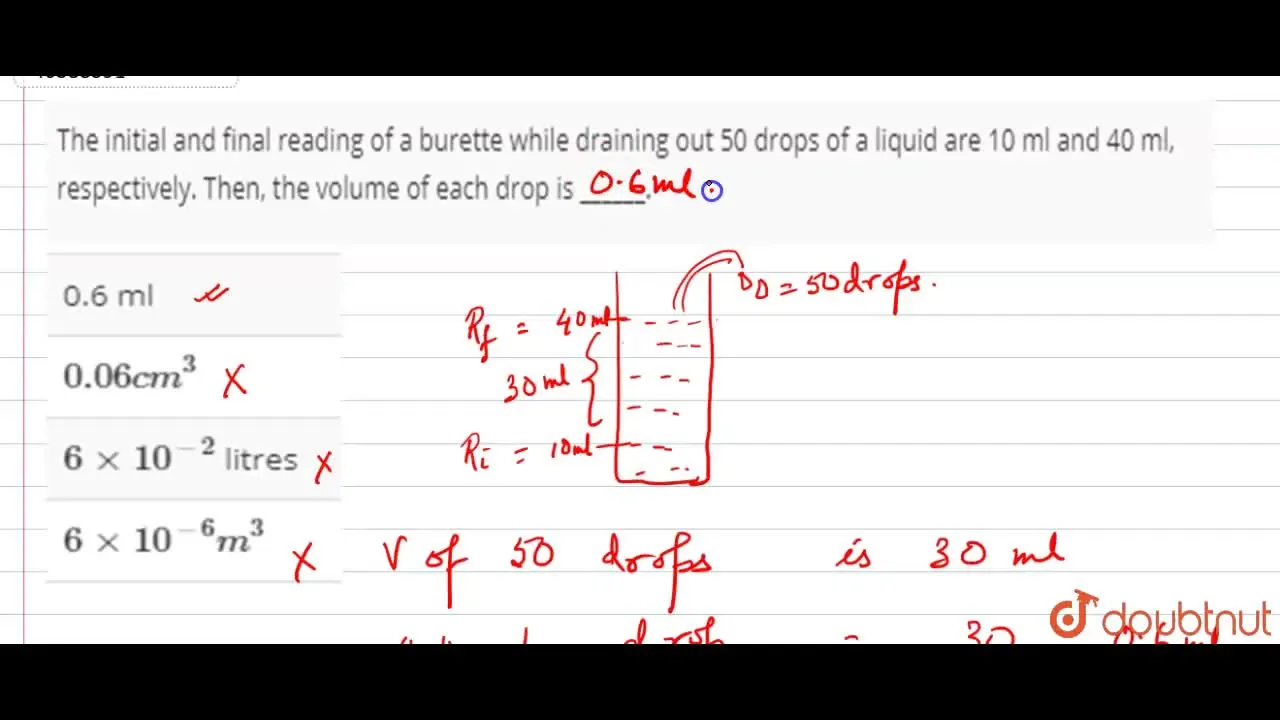 The initial and final reading of a burette while draining out 50 drops of a liquid are 10 ml and 40 ml,
respectively. Then, the volume of each drop is ______. 0.6 ml
0.6 ml
0.06cm³ X
6 × 10⁻² litres X
6 × 10⁻⁶m³ X
= 50 drops.
R_f = 40 ml
30 ml
R_i = 10 ml
V of 50 drops is 30 ml
drop = 30 0.6 ml
doubtnut